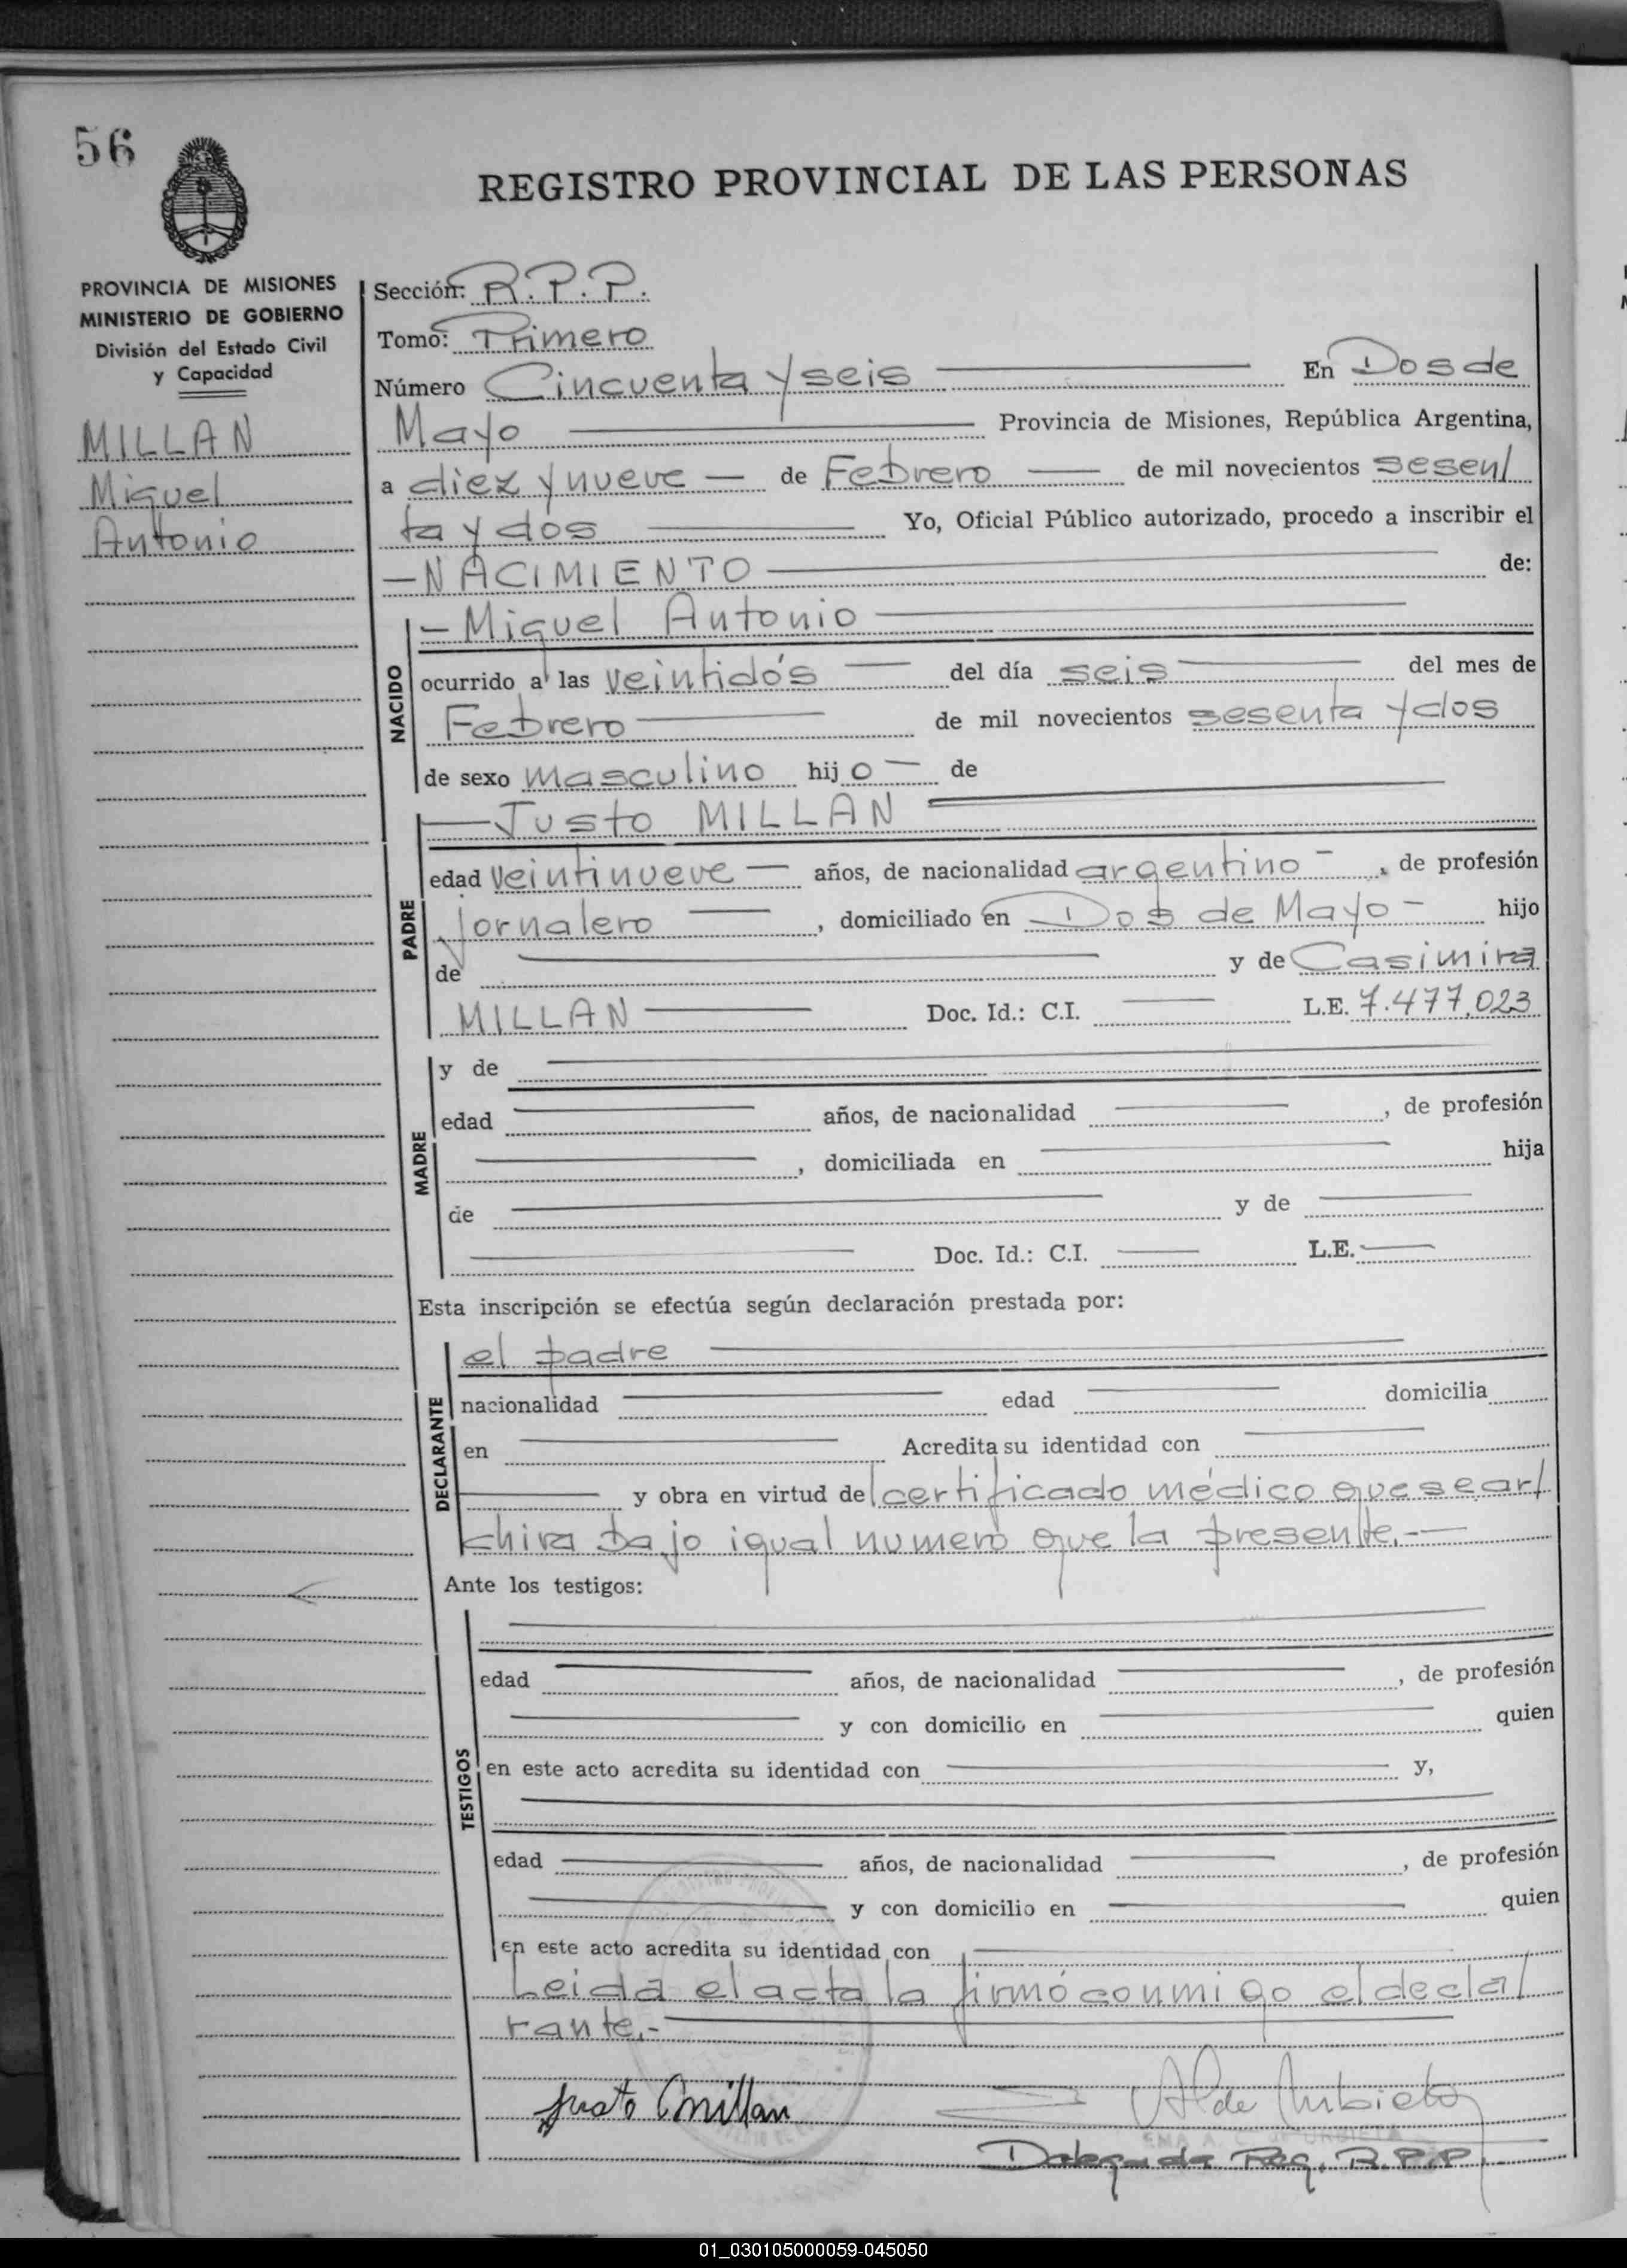 56
REGISTRO PROVINCIAL DE LAS PERSONAS
PROVINCIA DE MISIONES
MINISTERIO DE GOBIERNO
División del Estado Civil
y Capacidad
MILLAN
Miguel
Antonio
Sección: R.P.P.
Tomo: Primero
Número Cincuenta y seis En Dos de
Mayo Provincia de Misiones, República Argentina,
a diez y nueve — de Febrero — de mil novecientos sesen/
ta y dos Yo, Oficial Público autorizado, procedo a inscribir el
— NACIMIENTO — de:
NACIDO
— Miguel Antonio —
ocurrido a las veintidós — del día seis — del mes de
Febrero — de mil novecientos sesenta y dos
de sexo masculino hijo — de
PADRE
— Justo MILLAN —
edad veintinueve — años, de nacionalidad argentino —, de profesión
jornalero —, domiciliado en Dos de Mayo — hijo
de — y de Casimira
MILLAN — Doc. Id.: C.I. — L.E. 7.477.023
MADRE
y de —
edad — años, de nacionalidad —, de profesión
—, domiciliada en — hija
de — y de —
— Doc. Id.: C.I. — L.E. —
Esta inscripción se efectúa según declaración prestada por:
DECLARANTE
el padre —
nacionalidad — edad — domicilia
en — Acredita su identidad con —
— y obra en virtud del certificado médico que se ar/
chiva bajo igual numero que la presente.-—
Ante los testigos:
TESTIGOS
edad — años, de nacionalidad —, de profesión
— y con domicilio en — quien
en este acto acredita su identidad con — y,
edad — años, de nacionalidad —, de profesión
— y con domicilio en — quien
en este acto acredita su identidad con —
Leida el acta la firmó conmigo el decla/
rante.-—
Justo Millan
A de Urbieta
Delegada Reg. R.P.P.
01_030105000059-045050